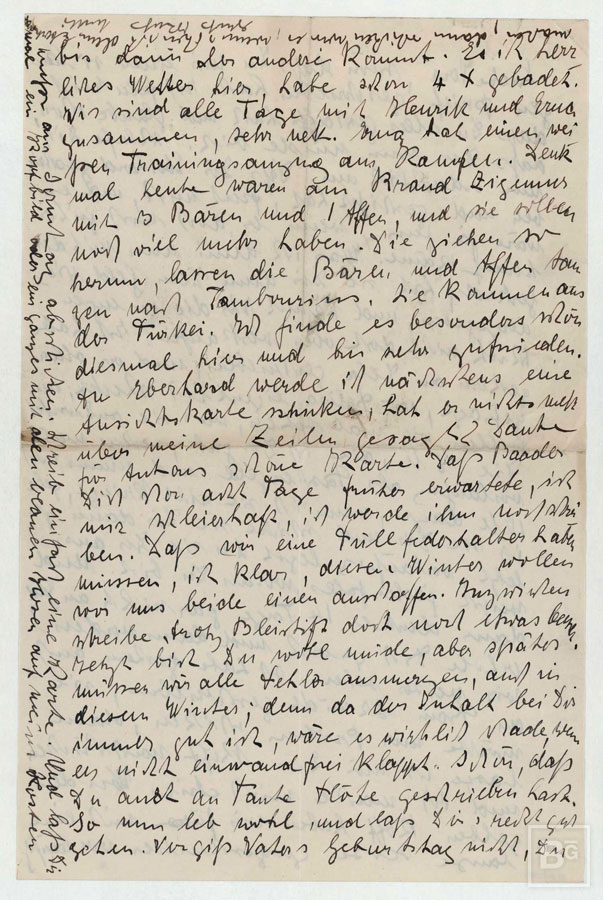 bis dann der andere kommt. Es ist herr
liches Wetter hier, habe schon 4 x gebadet.
Wir sind alle Tage mit Henrik und Erna
zusammen, sehr nett. Erna hat einen wei
ßen Trainingsanzug aus Kampen. Denk
mal heute waren am Strand Zigeuner
mit 3 Bären und 1 Affen, und sie sollen
noch viel mehr haben. Die ziehen so
herum, lassen die Bären und Affen tan
zen nach Tambourins. Sie kommen aus
der Türkei. Ich finde es besonders schön
diesmal hier und bin sehr zufrieden.
An Eberhard werde ich nächstens eine
Ansichtskarte schicken, hat er nichts mehr
über meine Zeilen gesagt? Danke
für Antons schöne Karte. Daß Baader
Dich schon acht Tage früher erwartete, ist
mir schleierhaft, ich werde ihm noch schrei
ben. Daß wir eine Füllfederhalter haben
müssen, ist klar, diesen Winter wollen
wir uns beide einen anschaffen. Inzwischen
schreibe trotz Bleistift doch noch etwas besser.
Jetzt bist Du wohl müde, aber später
müssen wir alle Fehler ausmerzen, auch in
diesem Winter; denn da der Inhalt bei Dir
immer gut ist, wäre es wirklich schade, wenn
es nicht einwandfrei klappt. Schön, daß
Du auch an Tante Flöte geschrieben hast.
So nun leb wohl, und laß Dir's recht gut
gehen. Vergiß Vaters Geburtstag nicht, Du
schreibe einfach eine Karte. Und laß Dir
mal ein Kopfbild oder ein ganzes mit den blauen Hosen auf meine Kosten
BG